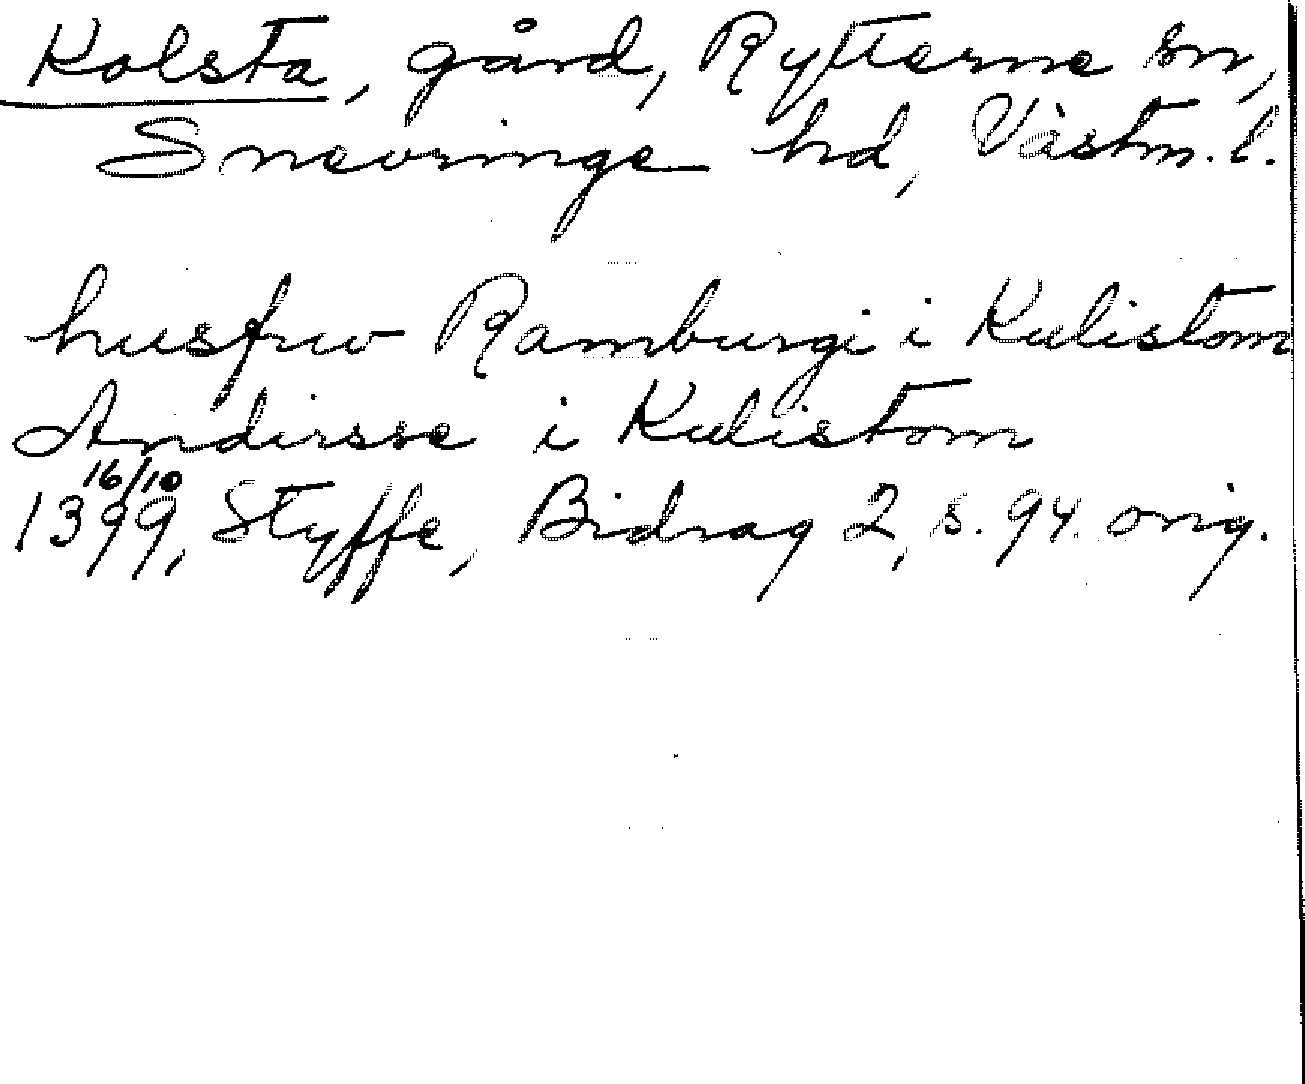 Kolsta, gård, Rytterne sn,
Snevringe hd, Västm. l.
husfrw Ramburgi i Kulistom
Andirsse i Kulistom
16/10
1399, Styffe, Bidrag 2, s. 94. orig.